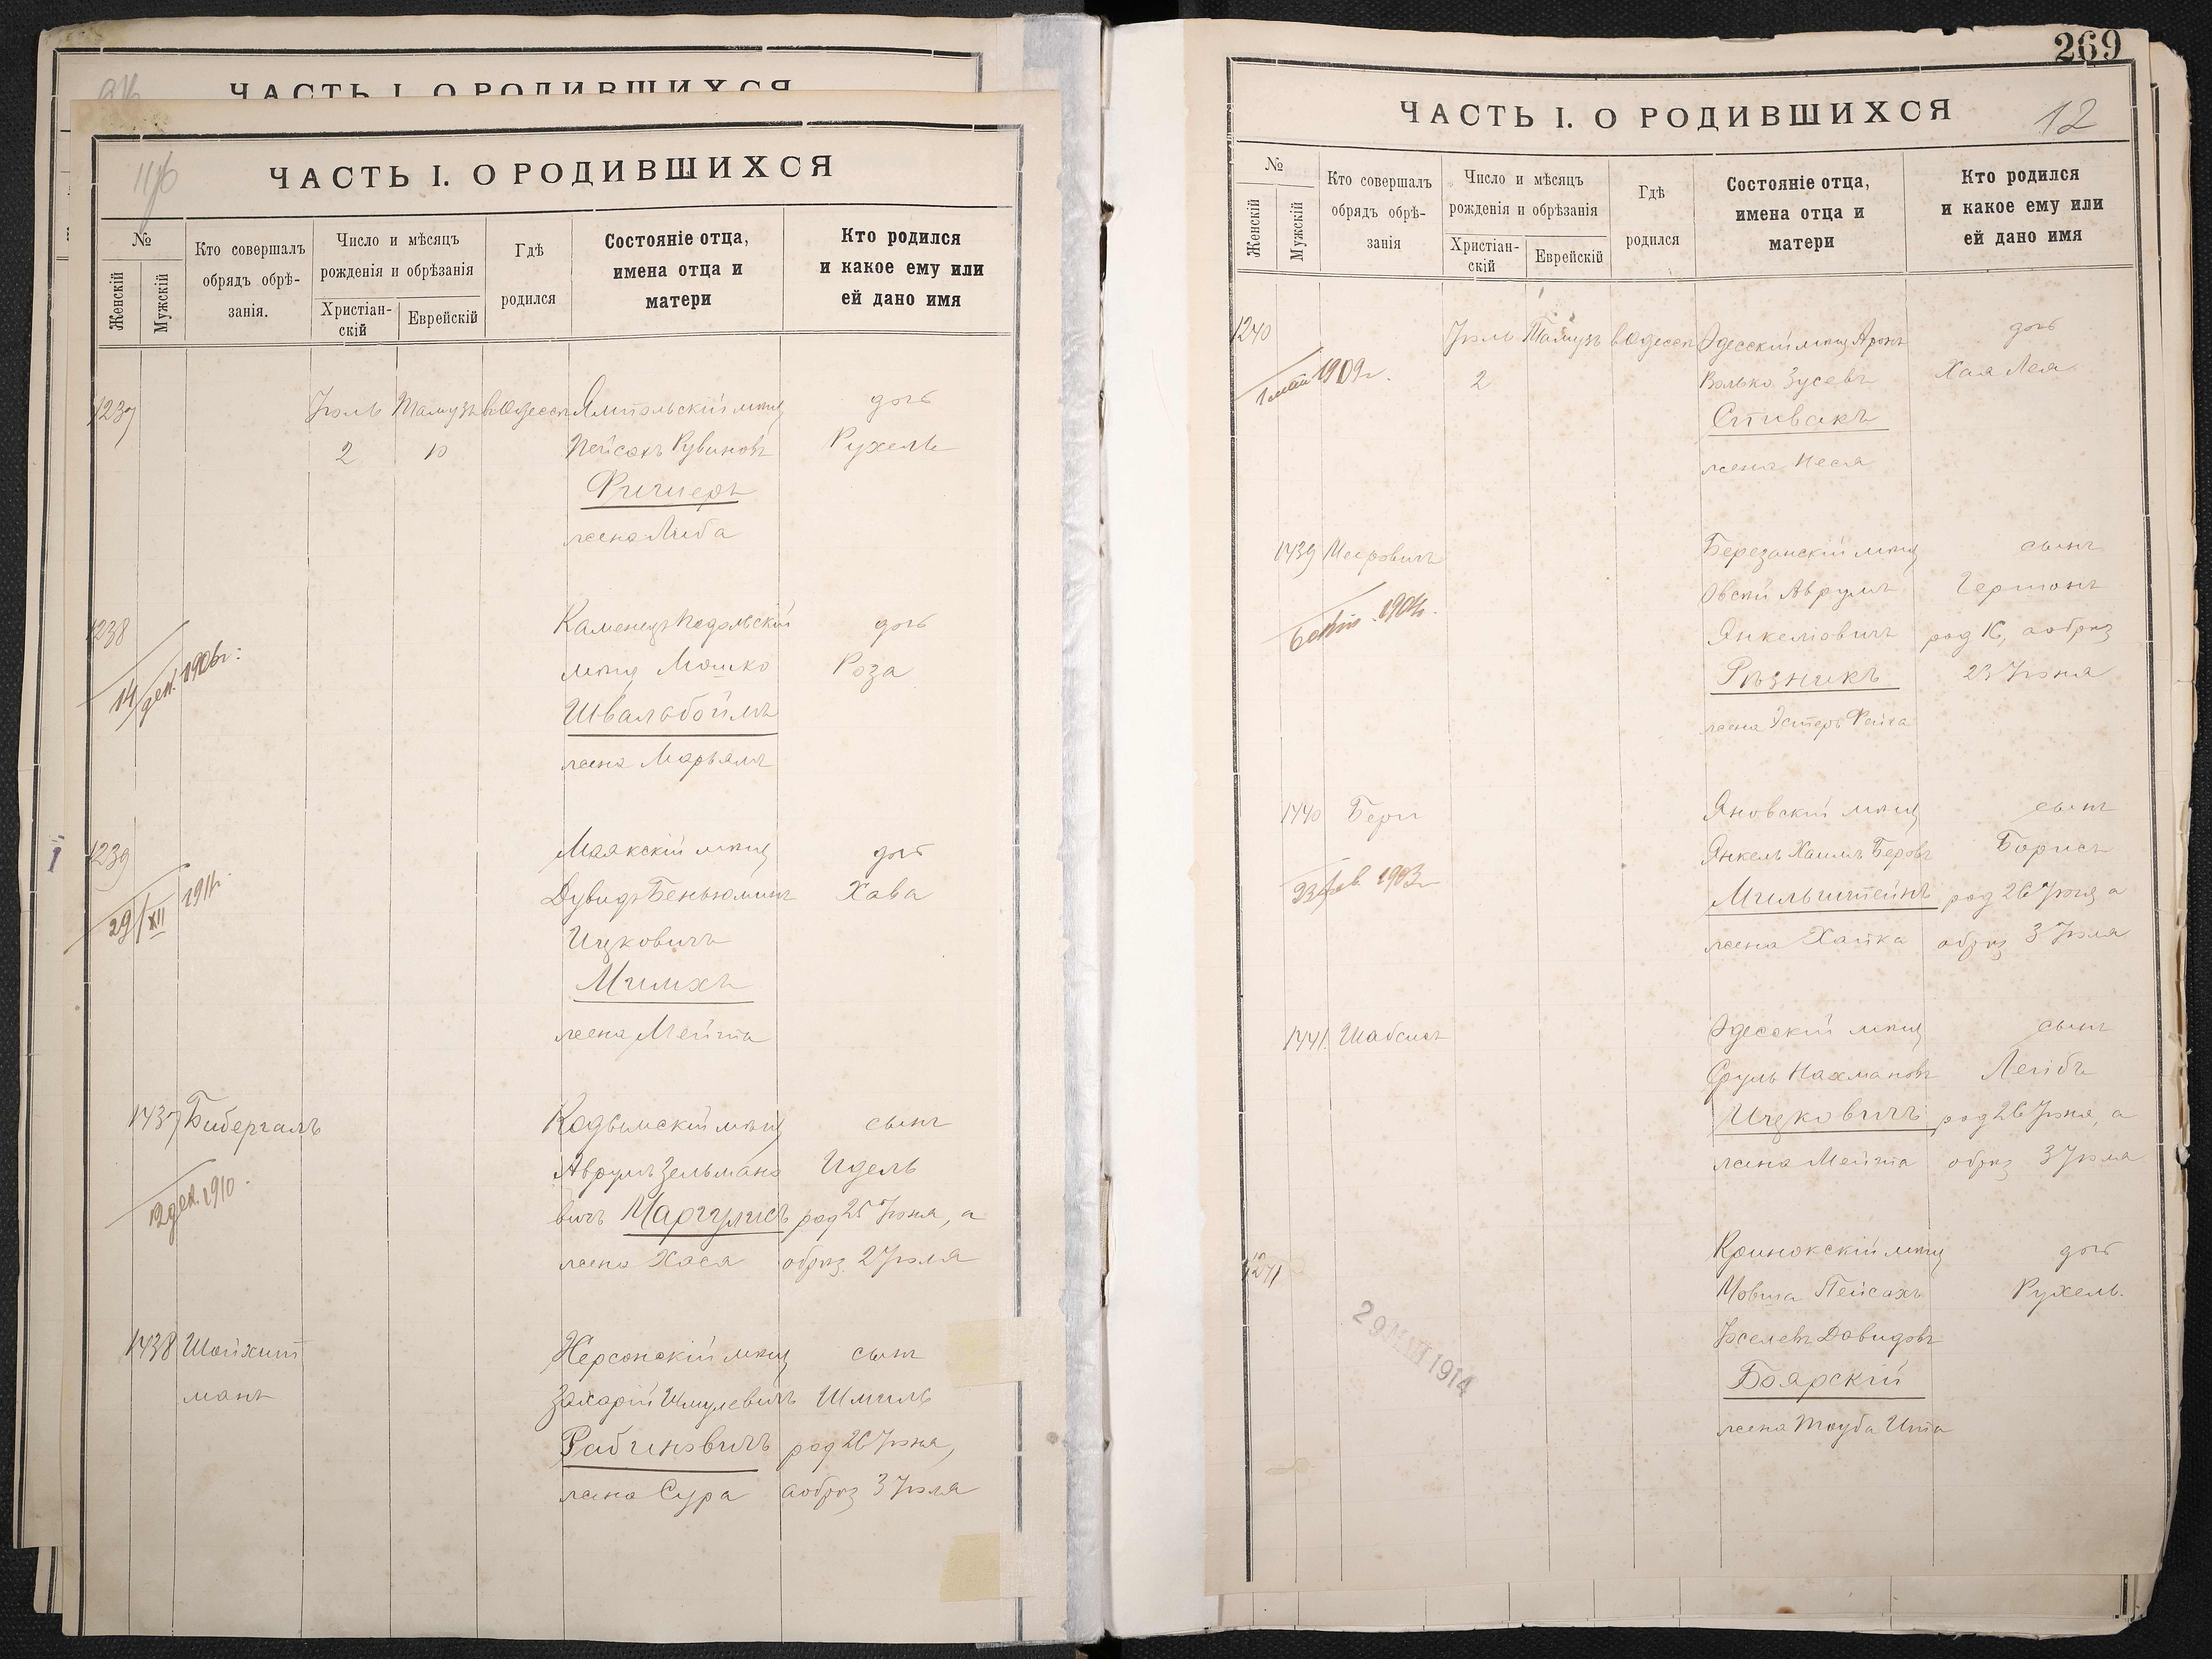 ЧАСТЬ I. О РОДИВШИХСЯ
ЧАСТЬ I. О РОДИВШИХСЯ
№
Женскій
Мужскій
Кто совершалъ
обрядъ обрѣ-
занія.
Число и мѣсяцъ
рожденія и обрѣзанія
Христіан-
скій
Еврейскій
Гдѣ
родился
Состояніе отца,
имена отца и
матери
Кто родился
и какое ему или
ей дано имя
1237 Іюль Тамузъ в Одессѣ Ямпольскій мѣщ дочь
2 10 Пейсахъ Рувиновъ Рухель
жена Либа
1238 Каменецъ Подольскій дочь
14 дек. 1906 г. мѣщ Мошко Роза
Швальбоймъ
жена Марьямъ
1239 Маякскій мѣщ дочь
29/XII 1911 г. Дувидъ Беньюминъ Хава
Ицковичъ
Милихъ
жена Мейта
1437 Бибергалъ Кодымскій мѣщ сынъ
Аврумъ Зельмано Идель
12 дек. 1910 вичъ Маргулисъ род 25 Іюня, а
жена Хася обрѣз. 2 Іюля
1438 Шойхит Херсонскій мѣщ сынъ
манъ Захарій Шмулевичъ Шмиль
Рабиновичъ род 26 Іюня,
жена Сура а обрѣз 3 Іюля
269
ЧАСТЬ I. О РОДИВШИХСЯ 12
№
Женскій
Мужскій
Кто совершалъ
обрядъ обрѣ-
занія
Число и мѣсяцъ
рожденія и обрѣзанія
Христіан-
скій
Еврейскій
Гдѣ
родился
Состояніе отца,
имена отца и
матери
Кто родился
и какое ему или
ей дано имя
1240 Іюль Тамузъ в Одессѣ Одесскій мѣщ Аронъ дочь
1909 г. 2 Волько Зусевъ Хая Лея
Спивакъ
жена Неся
1439 Меєровичъ Березанскій мѣщ сынъ
Овсій Аврумъ Гершонъ
1904 г. Янкеліовичъ род 16, а обрѣз
Рѣзникъ 23 Іюня
жена Эстеръ Фейга
1440 Берг Яновскій мѣщ сынъ
Янкель Хаимъ Беровъ Борисъ
1903 г. Мильштейнъ род 26 Іюня а
жена Хайка обрѣз 3 Іюля
1441. Шабсисъ Одесскій мѣщ сынъ
Сруль Нахмановъ Лейбъ
Ицковичъ род 26 Іюня, а
жена Мейта обрѣз 3 Іюля
1241 Кринокскій мѣщ дочь
Мовша Пейсахъ Рухель.
29 МАЙ 1914 Іоселевъ Давидовъ
Боярскій
жена Тауба Ита